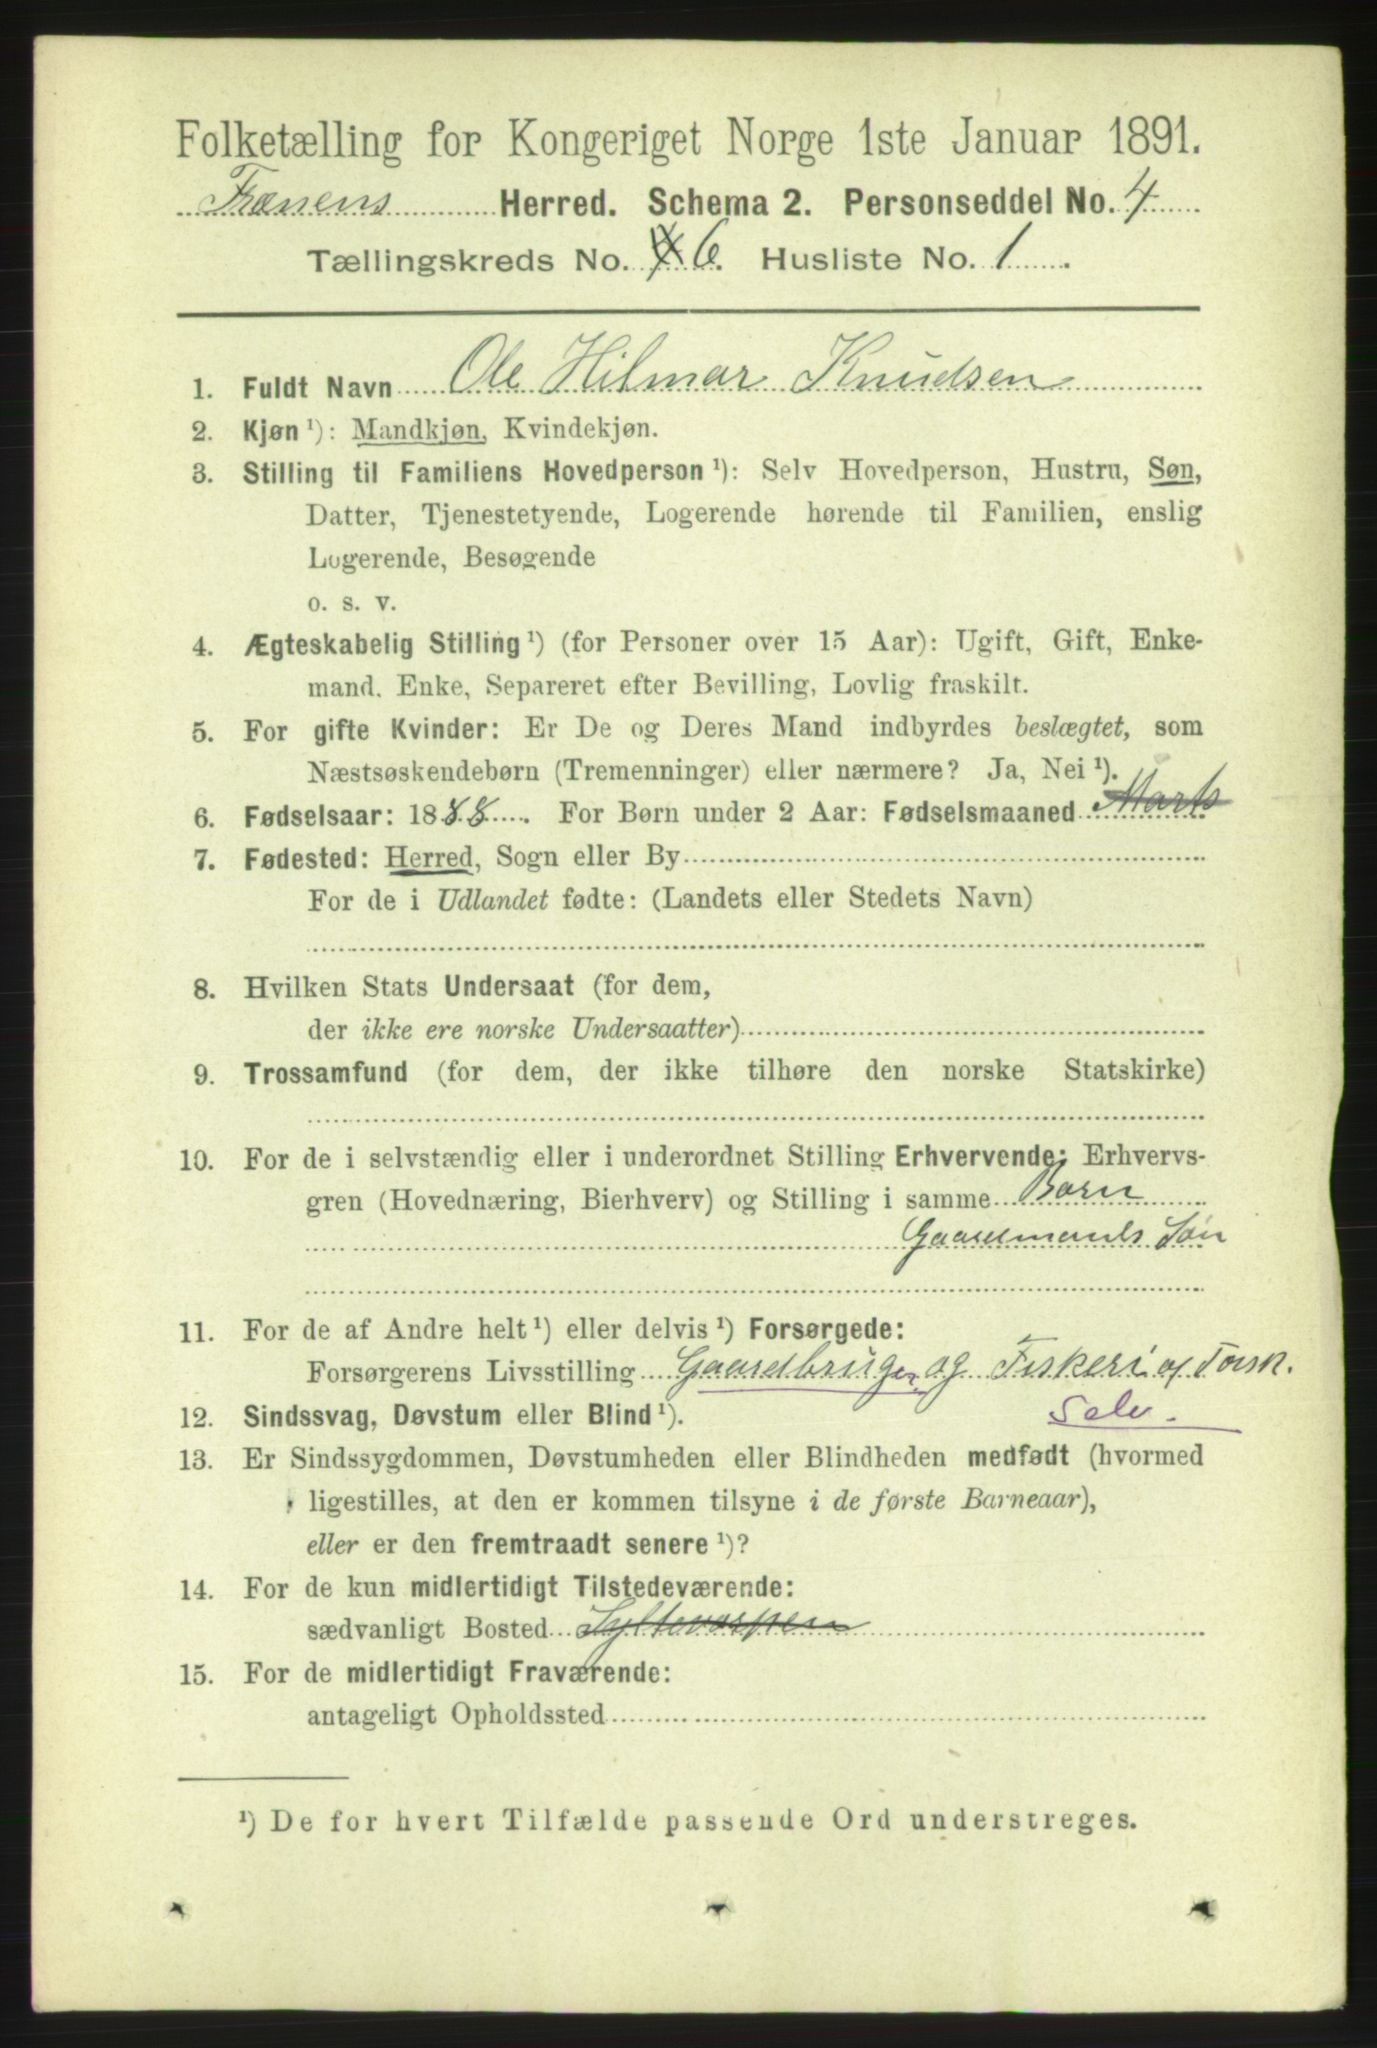 Folketælling for Kongeriget Norge 1ste Januar 1891.
Frænens Herred. Schema 2. Personseddel No. 4
Tællingskreds No. 6. Husliste No. 1.
1. Fuldt Navn Ole Hilmar Knudsen
2. Kjøn ¹): Mandkjøn, Kvindekjøn.
3. Stilling til Familiens Hovedperson ¹): Selv Hovedperson, Hustru, Søn,
Datter, Tjenestetyende, Logerende hørende til Familien, enslig
Logerende, Besøgende
o. s. v.
4. Ægteskabelig Stilling ¹) (for Personer over 15 Aar): Ugift, Gift, Enke-
mand, Enke, Separeret efter Bevilling, Lovlig fraskilt.
5. For gifte Kvinder: Er De og Deres Mand indbyrdes beslægtet, som
Næstsøskendebørn (Tremenninger) eller nærmere? Ja, Nei ¹).
6. Fødselsaar: 1888. For Børn under 2 Aar: Fødselsmaaned Marts
7. Fødested: Herred, Sogn eller By
For de i Udlandet fødte: (Landets eller Stedets Navn)
8. Hvilken Stats Undersaat (for dem,
der ikke ere norske Undersaatter)
9. Trossamfund (for dem, der ikke tilhøre den norske Statskirke)
10. For de i selvstændig eller i underordnet Stilling Erhvervende: Erhvervs-
gren (Hovednæring, Bierhverv) og Stilling i samme Barn
Gaardmands Søn
11. For de af Andre helt ¹) eller delvis ¹) Forsørgede:
Forsørgerens Livsstilling Gaardbruger og Fiskeri af Torsk.
Selv.
12. Sindssvag, Døvstum eller Blind ¹).
13. Er Sindssygdommen, Døvstumheden eller Blindheden medfødt (hvormed
ligestilles, at den er kommen tilsyne i de første Barneaar),
eller er den fremtraadt senere ¹)?
14. For de kun midlertidigt Tilstedeværende:
sædvanligt Bosted
15. For de midlertidigt Fraværende:
antageligt Opholdssted
¹) De for hvert Tilfælde passende Ord understreges.